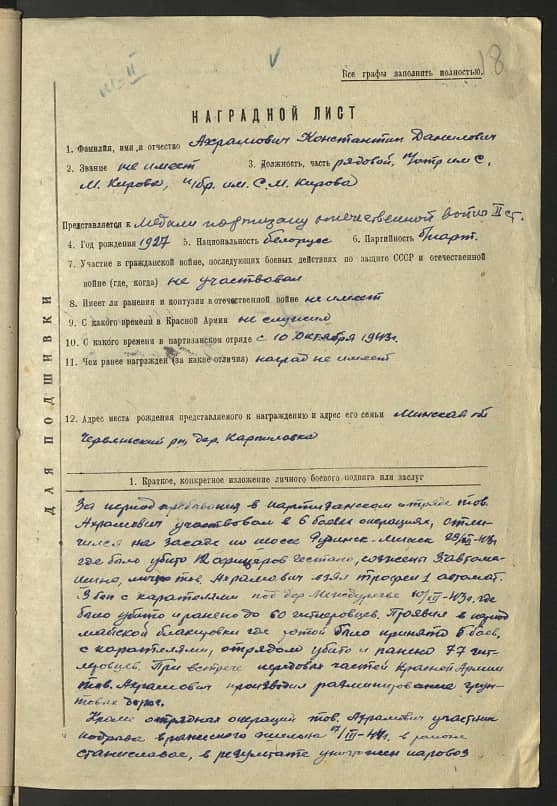 18
III-II
Все графы заполнять полностью.
НАГРАДНОЙ ЛИСТ
1. Фамилия, имя и отчество Ахрамович Константин Данилович
2. Звание не имеет 3. Должность, часть рядовой, отр им С.
М. Кирова, бр. им. С. М. Кирова)
Представляется к Медали партизану отечественной войны II ст.
4. Год рождения 1927 5. Национальность белорус 6. Партийность б/парт.
7. Участие в гражданской войне, последующих боевых действиях по защите СССР и отечественной
войне (где, когда) не участвовал
8. Имеет ли ранения и контузии в отечественной войне не имеет
9. С какого времени в Красной Армии не служил
10. С какого времени в партизанском отряде с 10 октября 1943 г.
11. Чем ранее награжден (за какие отличия) наград не имеет
12. Адрес места рождения представляемого к награждению и адрес его семьи Минская обл
Червенский рн, дер. Карпиловка
ДЛЯ ПОДШИВКИ
1. Краткое, конкретное изложение личного боевого подвига или заслуг
За период пребывания в партизанском отряде тов.
Ахрамович участвовал в 6 боевых операциях, отли-
чился на засаде по шоссе Минск
где было убито 12 офицеров гестапо, сожжены 3 автома-
шины, лично тов. Ахрамович взял трофеи 1 автомат.
В бою с карателями под дер г. где
было убито и ранено до 60 гитлеровцев. Проявил в период
майской блакировки где было принято 5 боев,
с карателями, отрядом убито и ранено 77 гит-
леровцев. При встрече передовых частей Красной Армии
тов. Ахрамович производил разминирование грун-
товых дорог.
Кроме отрядная операций тов. Ахрамович участник
подрыва вражеского эшелона /III-44г. в районе
в результате уничтожен паровоз